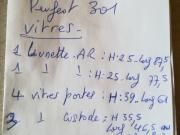 Peugeot 301
vitres.
1 Lunette AR : H:25-Larg 87,5
1 1 1 : H:25-Larg 77,5
4 vitres portes : H:39-Larg 61
3 1 Custode : H 35,5
Larg 46,5